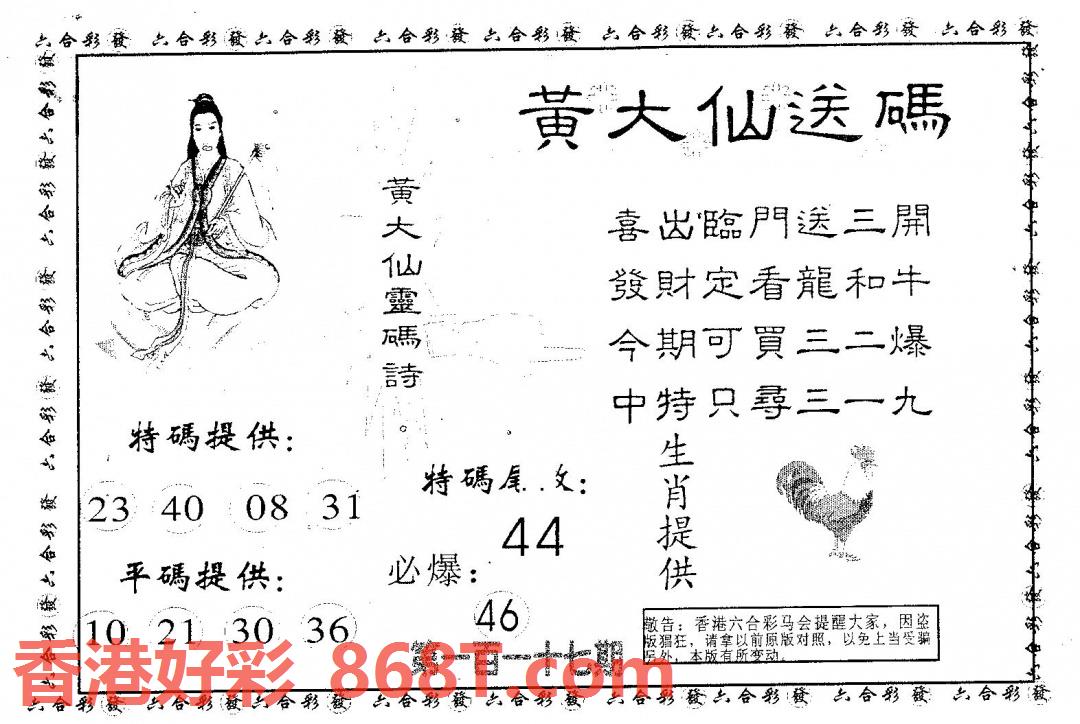 六合彩發 六合彩發 六合彩發 六合彩發 六合彩發 六合彩發 六合彩發 六合彩發 六合彩發
黃大仙送碼
黃大仙靈碼詩
喜出臨門送三開
發財定看龍和牛
今期可買三二爆
中特只尋三一九
特碼提供：
23 40 08 31
平碼提供：
10 21 30 36
特碼尾
44
必爆：
46
生肖提供
敬告：香港六合彩马会提醒大家，因盗
版猖狂，请拿以前原版对照，以免上当受骗
另外，本版有所变动。
第一百一十七期
香港好彩 868T.com